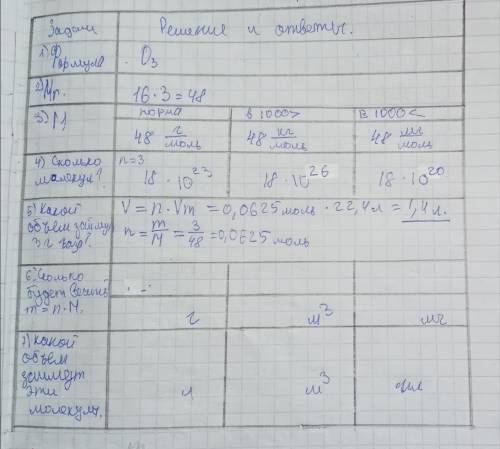 Задачи Решение и ответы.
1) Формула O₃
2) Mr. 16·3=48
3) M норма в 1000> в 1000<
48 г/моль 48 кг/моль 48 мг/моль
4) Сколько молекул? n=3
18·10²³ 18·10²⁶ 18·10²⁰
5) Какой объем займут 3 г газа?
V = n·Vm = 0,0625 моль · 22,4 л = 1,4 л.
n = m/M = 3/48 = 0,0625 моль
6) Сколько будет весить
m = n·M. г м³ мг
7) Какой объем займут эти молекулы. л м³ мл